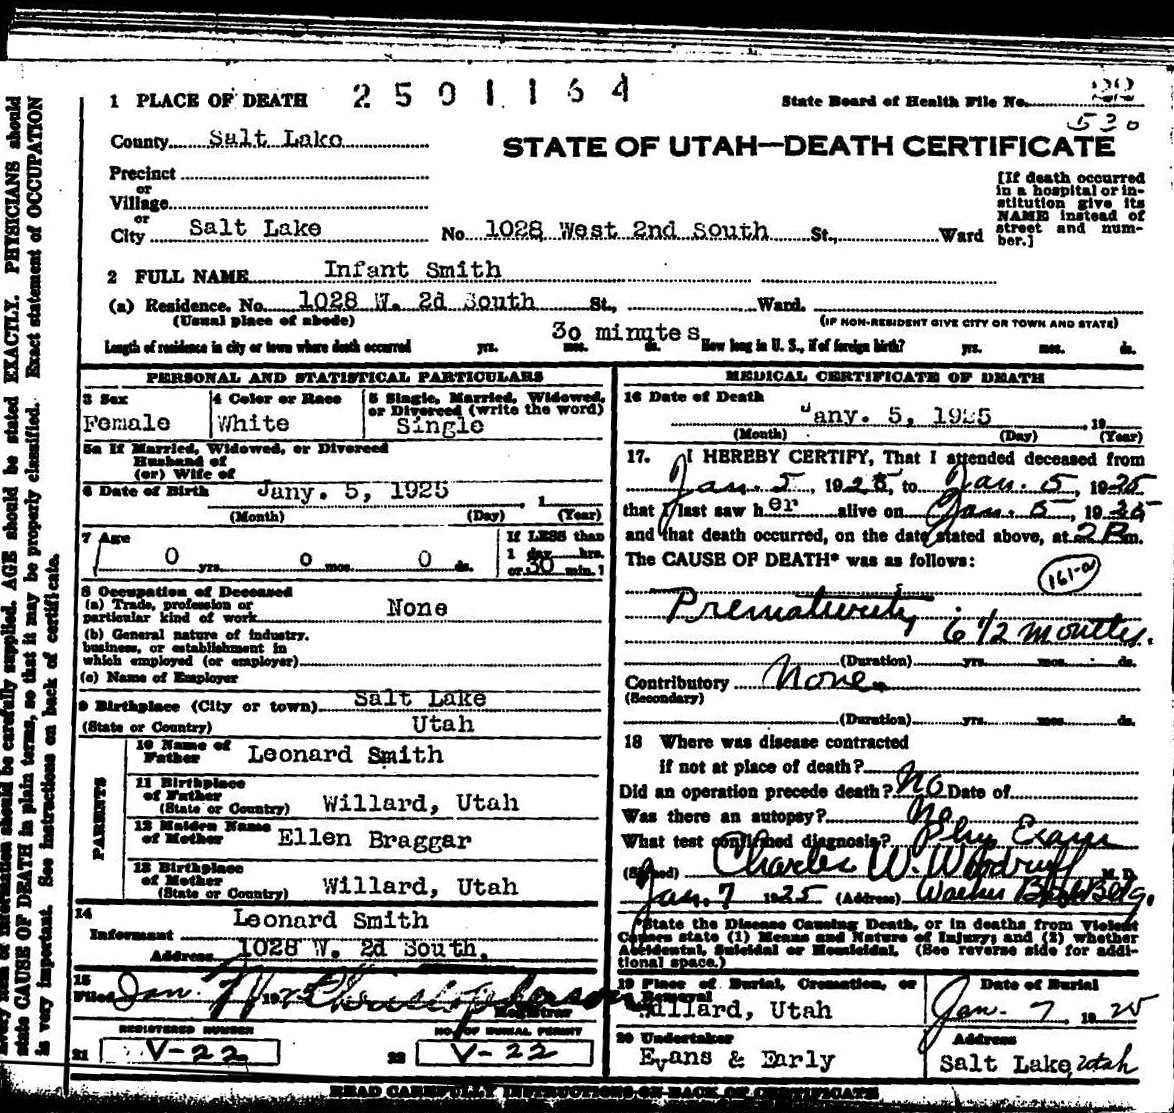 1 PLACE OF DEATH 2501164 State Board of Health File No. 22
530
County Salt Lake
STATE OF UTAH—DEATH CERTIFICATE
Precinct
or
Village
or
City Salt Lake No 1028 West 2nd South St., Ward
[If death occurred
in a hospital or in-
stitution give its
NAME instead of
street and num-
ber.]
2 FULL NAME Infant Smith
(a) Residence. No. 1028 W. 2d South St., Ward.
(Usual place of abode) (IF NON-RESIDENT GIVE CITY OR TOWN AND STATE)
30 minutes
Length of residence in city or town where death occurred yrs. mos. ds. How long in U. S., if of foreign birth? yrs. mos. ds.
PERSONAL AND STATISTICAL PARTICULARS
3 Sex
Female
4 Color or Race
White
5 Single, Married, Widowed,
or Divorced (write the word)
Single
5a If Married, Widowed, or Divorced
Husband of
(or) Wife of
6 Date of Birth Jany. 5, 1925 , 1
(Month) (Day) (Year)
7 Age
0 yrs. 0 mos. 0 ds.
If LESS than
1 day hrs.
or 30 min.?
8 Occupation of Deceased
(a) Trade, profession or
particular kind of work None
(b) General nature of industry,
business, or establishment in
which employed (or employer)
(c) Name of Employer
9 Birthplace (City or town) Salt Lake
(State or Country) Utah
PARENTS
10 Name of
Father Leonard Smith
11 Birthplace
of Father
(State or Country) Willard, Utah
12 Maiden Name
of Mother Ellen Braggar
13 Birthplace
of Mother
(State or Country) Willard, Utah
14
Informant Leonard Smith
Address 1028 W. 2d South.
15
Filed Jan. 7 1925
Registrar
REGISTERED NUMBER
21 V-22
NO. OF BURIAL PERMIT
22 V-22
MEDICAL CERTIFICATE OF DEATH
16 Date of Death
Jany. 5, 1925 , 19
(Month) (Day) (Year)
17. I HEREBY CERTIFY, That I attended deceased from
Jan. 5, 1925, to Jan. 5, 1925
that I last saw her alive on Jan. 5, 1925
and that death occurred, on the date stated above, at 2 P m.
The CAUSE OF DEATH* was as follows:
161-a
Prematurity
6 1/2 months.
(Duration) yrs. mos. ds.
Contributory None
(Secondary)
(Duration) yrs. mos. ds.
18 Where was disease contracted
if not at place of death?
Did an operation precede death? No Date of
Was there an autopsy? No
What test confirmed diagnosis? Phy Exam
(Signed) Charles W. Woodruff M. D.
Jan. 7 1925 (Address) Walker Bank Bldg.
*State the Disease Causing Death, or in deaths from Violent
Causes state (1) Means and Nature of Injury; and (2) whether
Accidental, Suicidal or Homicidal. (See reverse side for addi-
tional space.)
19 Place of Burial, Cremation, or
Removal
Willard, Utah
Date of Burial
Jan. 7 1925
20 Undertaker
Evans & Early
Address
Salt Lake, Utah
READ CAREFULLY INSTRUCTIONS ON BACK OF CERTIFICATE
information should be carefully supplied. AGE should be stated EXACTLY. PHYSICIANS should
state CAUSE OF DEATH in plain terms, so that it may be properly classified. Exact statement of OCCUPATION
is very important. See instructions on back of certificate.